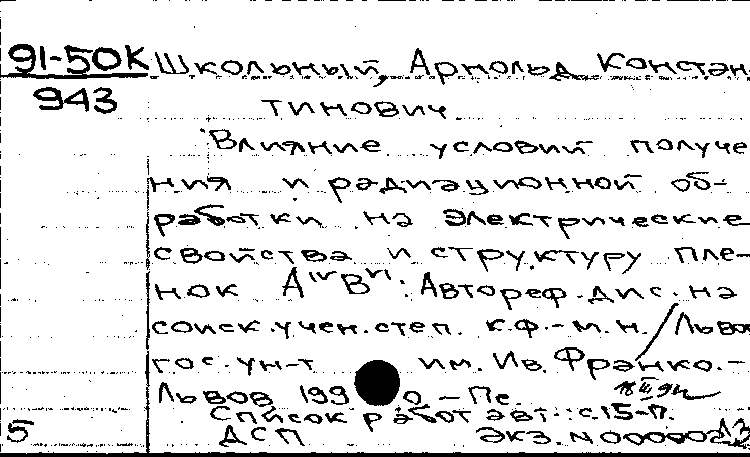 91-50К Школьный, Арнольд Констан
943 тинович
Влияние условий получе
ния и радиационной об-
работки на электрические
свойства и структуру пле-
нок AᴵⱽBⱽᴵ. Автореф. дис. на
соиск. учен. степ. к.ф.-м.н. / Львов
гос. ун-т им. Ив. Франко. -
Львов 1990 - Пе.
Список работ авт.: с. 15-17.
5 ДСП Экз. N 000002